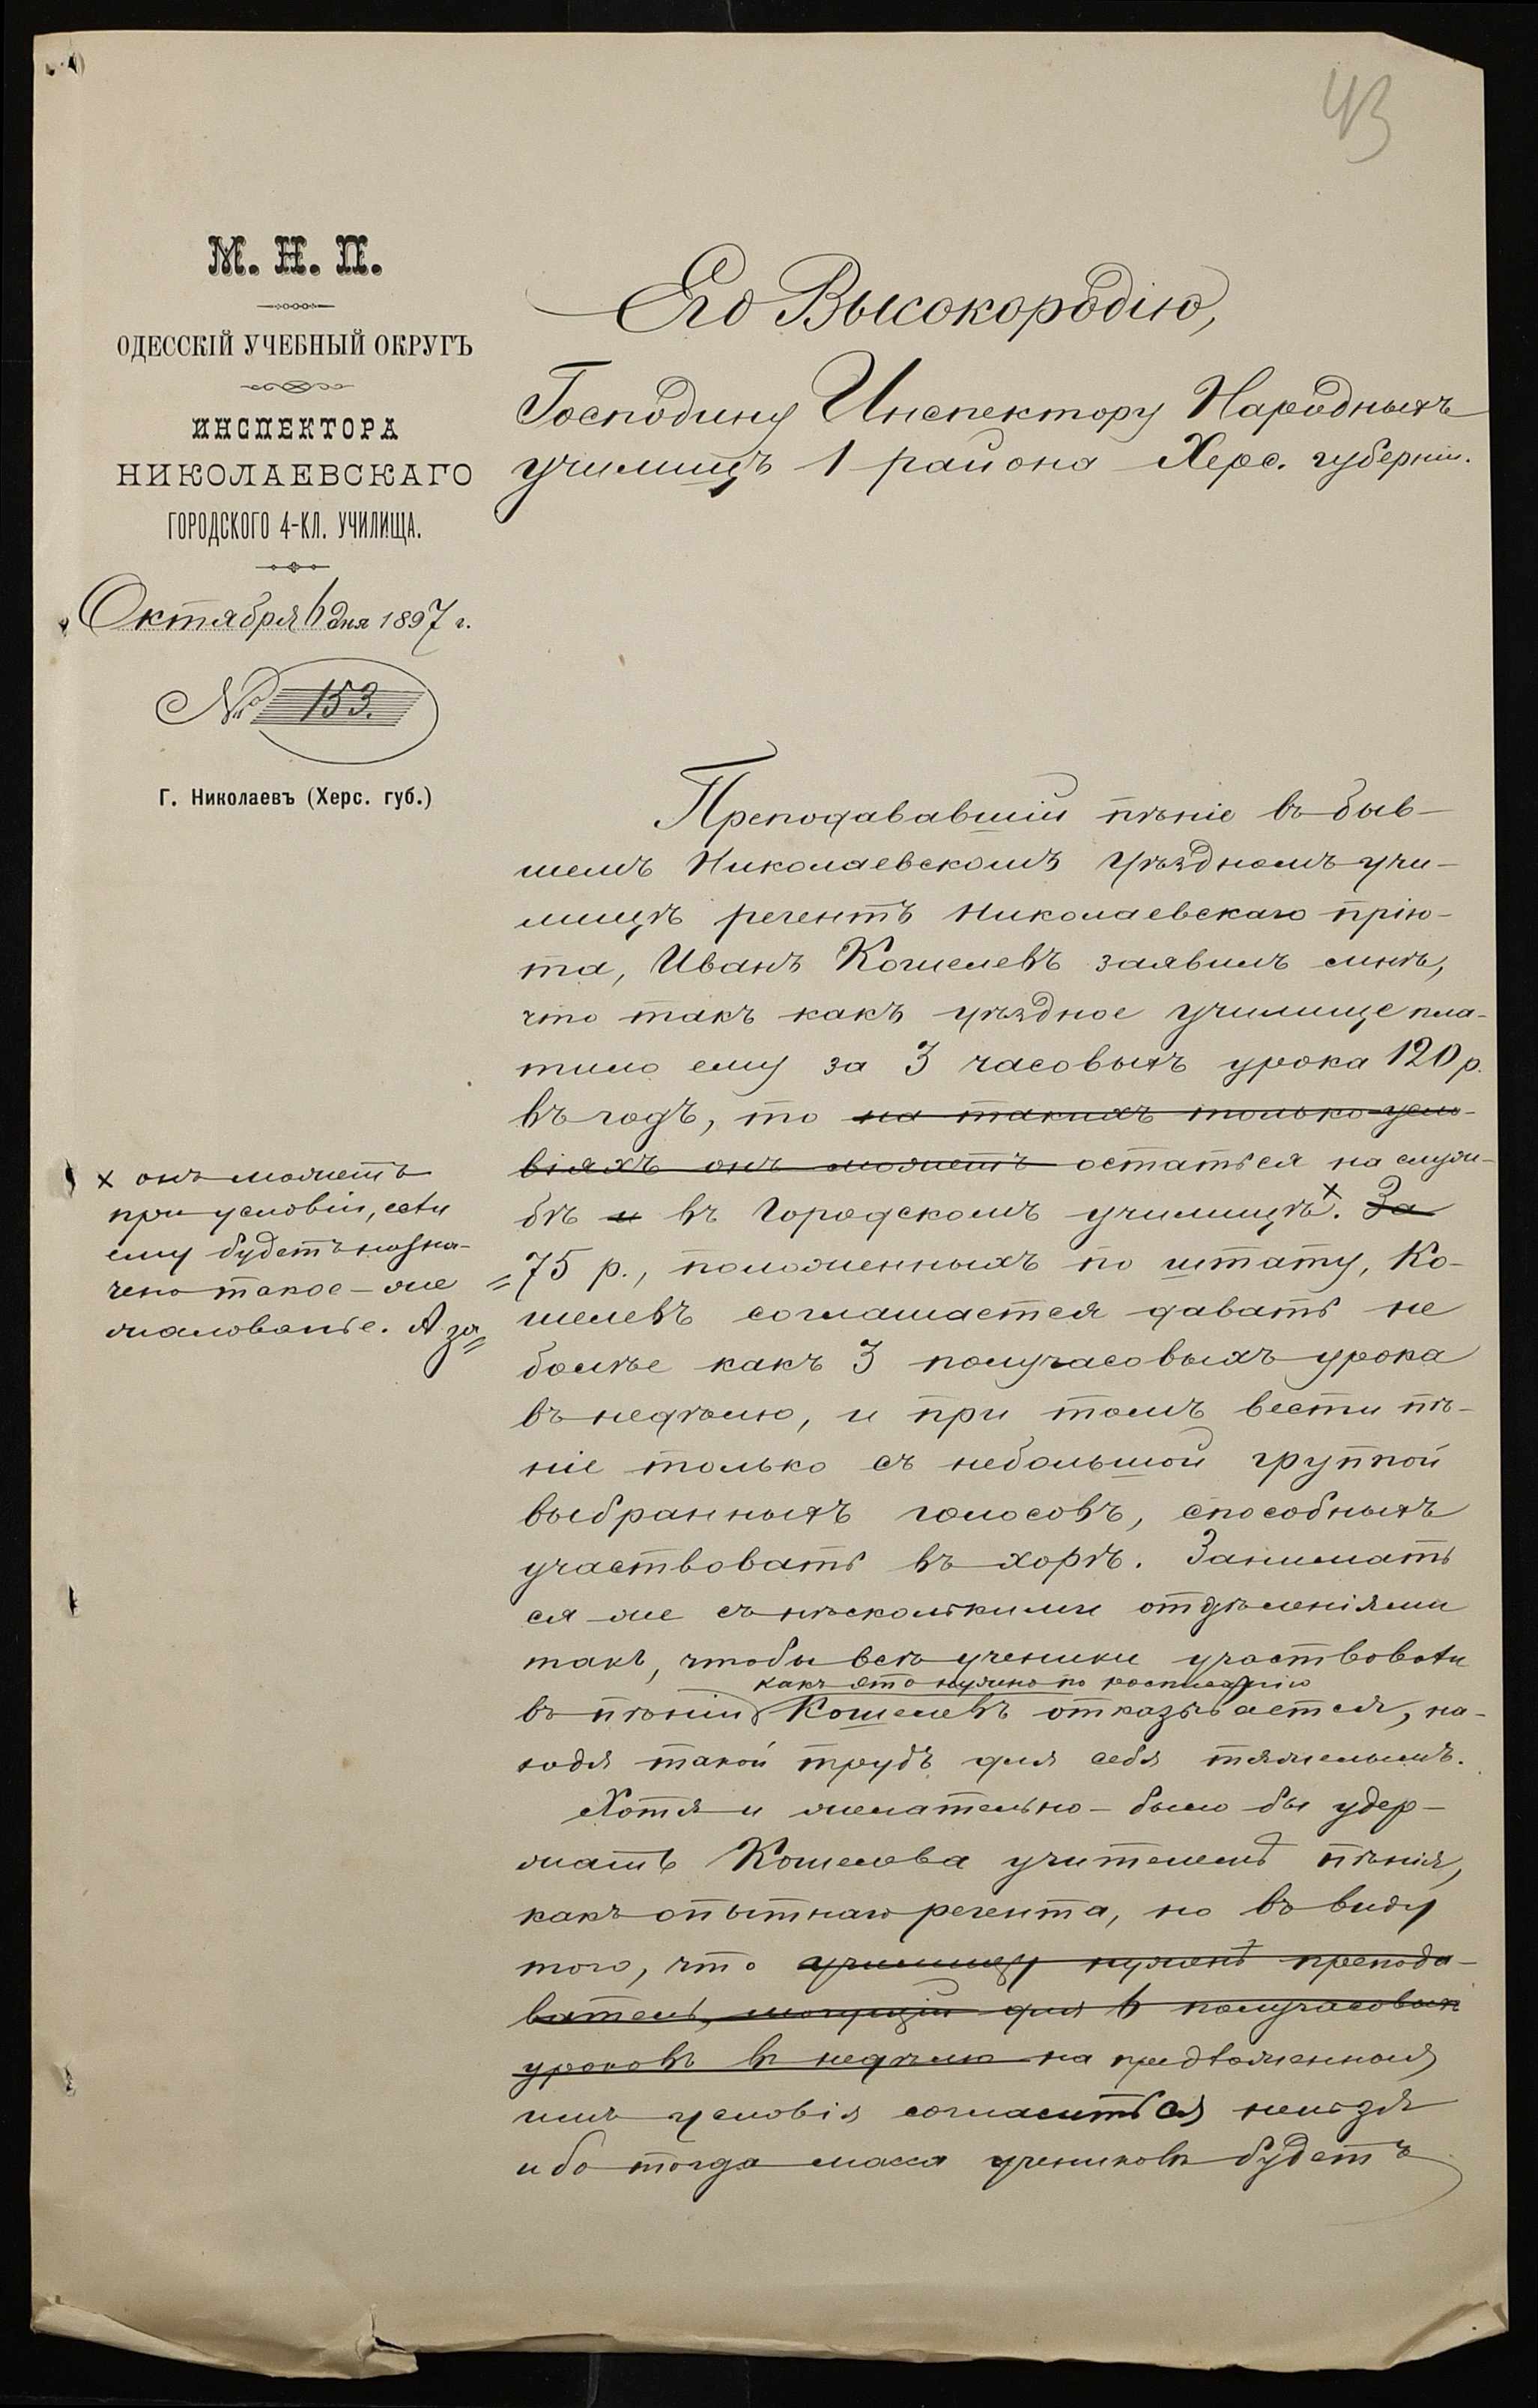 43
М. Н. П.
ОДЕССКІЙ УЧЕБНЫЙ ОКРУГЪ
ИНСПЕКТОРА
НИКОЛАЕВСКАГО
ГОРОДСКОГО 4-КЛ. УЧИЛИЩА.
Октября 6 дня 1897 г.
№ 153.
Г. Николаевъ (Херс. губ.)
Его Высокородію,
Господину Инспектору Народныхъ
училищъ 1 района Херс. губерніи.
Преподававшій пѣніе въ быв-
шемъ Николаевскомъ Уѣздномъ учи-
лищѣ регентъ Николаевскаго прію-
та, Иванъ Кошелевъ заявилъ мнѣ,
что такъ какъ уѣздное училище пла-
тило ему за 3 часовыхъ урока 120 р.
въ годъ, то на такихъ только усло-
віяхъ онъ можетъ остаться на служ-
бѣ и въ Городскомъ училищѣ.× За
=75 р., положенныхъ по штату, Ко-
шелевъ соглашается давать не
болѣе какъ 3 получасовыхъ урока
въ недѣлю, и при томъ вести пѣ-
ніе только съ небольшой группой
выбранныхъ голосовъ, способныхъ
участвовать въ хорѣ. Занимать
ся же съ нѣсколькими отдѣленіями
такъ, чтобы всѣ ученики участвовали
какъ это нужно по росписанію
въ пѣніи Кошелевъ отказывается, на-
ходя такой трудъ для себя тяжелымъ.
Хотя и желательно-было бы удер-
жать Кошелева учителемъ пѣнія,
какъ опытнаго регента, но въ виду
того, что училищу нуженъ препода-
ватель, могущій для 6 получасовыхъ
уроковъ въ недѣлю на предложенныя
имъ условія согласиться нельзя
ибо тогда масса учениковъ будетъ
× онъ можетъ
при условіи, если
ему будетъ назна-
чено такое-же
жалованье. А за=